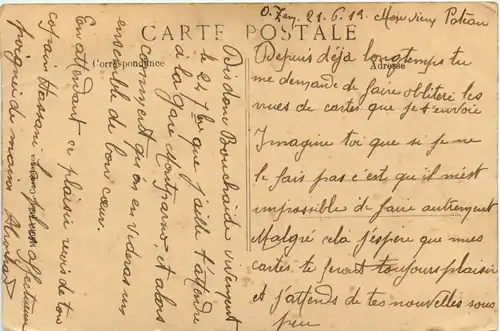 CARTE POSTALE
Correspondance
Adresse
O. Zem, 21.6.19. Mon vieux Poteau
Depuis déjà longtemps tu
me demande de faire oblitéré les
vues de cartes que je t'envoie
Imagine toi que si je ne
le fais pas c'est qu'il m'est
impossible de faire autrement
Malgré cela j'espère que mes
cartes te feront toujours plaisir
et j'attends de tes nouvelles sous
peu
Dis donc Bouchaïde vivement
le 24 7bre que j'aille t'attendre
à la gare Montparno. et alors
comment qu'on en videras un
ensemble de bon cœur.
En attendant ce plaisir reçois de ton
copain Hassen affectueuse
poignée de mains